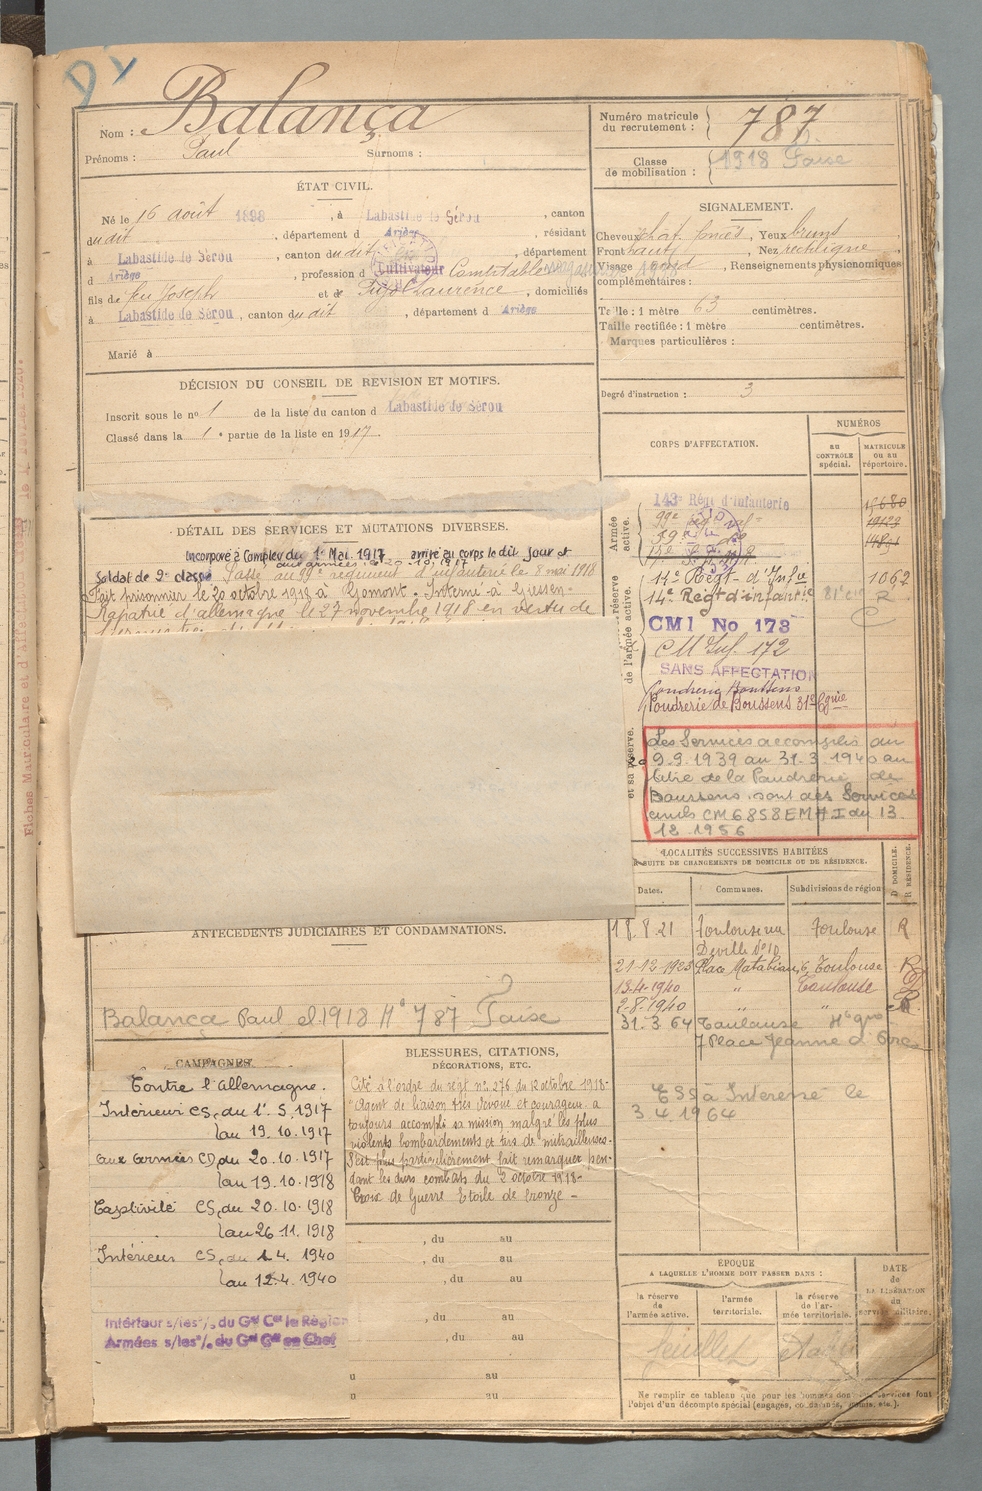 Dy
Nom : Balança
Prénoms : Paul Surnoms :
Numéro matricule du recrutement : 787
Classe de mobilisation : 1918
ÉTAT CIVIL.
Né le 16 août 1898, à Labastide de Sérou, canton
dudit, département d Ariège, résidant
à Labastide de Sérou, canton dudit, département
d Ariège, profession d Cultivateur Comptable
fils de feu Joseph et de Pujol Laurence, domiciliés
à Labastide de Sérou, canton dudit, département d Ariège
Marié à
SIGNALEMENT.
Cheveux chat. foncés, Yeux bruns
Front haut, Nez rectiligne
Visage rond, Renseignements physionomiques
complémentaires :
Taille : 1 mètre 63 centimètres.
Taille rectifiée : 1 mètre centimètres.
Marques particulières :
Degré d'instruction : 3
DÉCISION DU CONSEIL DE REVISION ET MOTIFS.
Inscrit sous le nº 1 de la liste du canton d Labastide de Sérou
Classé dans la 1e partie de la liste en 1917.
DÉTAIL DES SERVICES ET MUTATIONS DIVERSES.
Incorporé à Compter du 1er Mai 1917 arrivé au corps le dit jour et
aux armées le 20-10-1917
Soldat de 2e classe Passé au 99e régiment d'infanterie le 8 mai 1918
Fait prisonnier le 20 octobre 1918 à Interné à Giessen-
Rapatrié d'allemagne le 27 novembre 1918 en vertu de
CORPS D'AFFECTATION.
NUMÉROS
AU CONTROLE spécial.
MATRICULE OU AU répertoire.
Armée active.
143e Régt d'Infanterie
99e
59e
14e Régt d'Infie 1062
14e Régt d'infantie R
CMI No 173
CM Inf. 172
SANS AFFECTATION
Poudrerie Boussens
Poudrerie de Boussens 31e Cgnie
Les Services accomplis du
9.9.1939 au 31.3.1940 au
titre de la Poudrerie de
Boussens sont des Services
civils CM 6858 EMA I du 13
12 1956
LOCALITÉS SUCCESSIVES HABITÉES
PAR SUITE DE CHANGEMENTS DE DOMICILE OU DE RÉSIDENCE.
Dates. Communes. Subdivisions de région D DOMICILE. R RÉSIDENCE.
18.8.21 Toulouse rue Toulouse R
Deville Nº 10
21-12-1925 Place Matabiau, 6, Toulouse R
13-4-1940 " Toulouse
2-8-1940 " "
31.3.64 Toulouse Hte Gne
7 Place Jeanne d'Arc
ESS à Interessé le
3.4.1964
ANTÉCÉDENTS JUDICIAIRES ET CONDAMNATIONS.
Balança Paul cl. 1918 Nº 787
CAMPAGNES
Contre l'allemagne.
Intérieur CS, du 1er.5.1917
au 19.10.1917
aux armées CD, du 20.10.1917
au 19.10.1918
Captivité CS, du 20.10.1918
au 26.11.1918
Intérieur CS, du 1.4.1940
au 12.4.1940
Intérieur s/les º/. du Gal Ct la Région
Armées s/les º/. du Gal Ct en Chef
BLESSURES, CITATIONS,
DÉCORATIONS, ETC.
Cité à l'ordre du régt nº 276 du 12 octobre 1918-
"Agent de liaison très dévoué et courageux a
toujours accompli sa mission malgré les plus
violents bombardements et tirs de mitrailleuses-
S'est plus particulièrement fait remarquer pen-
dant les durs combats du 2 octobre 1918-
Croix de Guerre Etoile de bronze -
, du au
, du au
, du au
, du au
, du au
u au
u au
ÉPOQUE
A LAQUELLE L'HOMME DOIT PASSER DANS :
DATE de LA LIBÉRATION du service militaire.
la réserve de l'armée active.
l'armée territoriale.
la réserve de l'armée territoriale.
Ne remplir ce tableau que pour les hommes dont les services font
l'objet d'un décompte spécial (engagés, condamnés, omis, etc.).